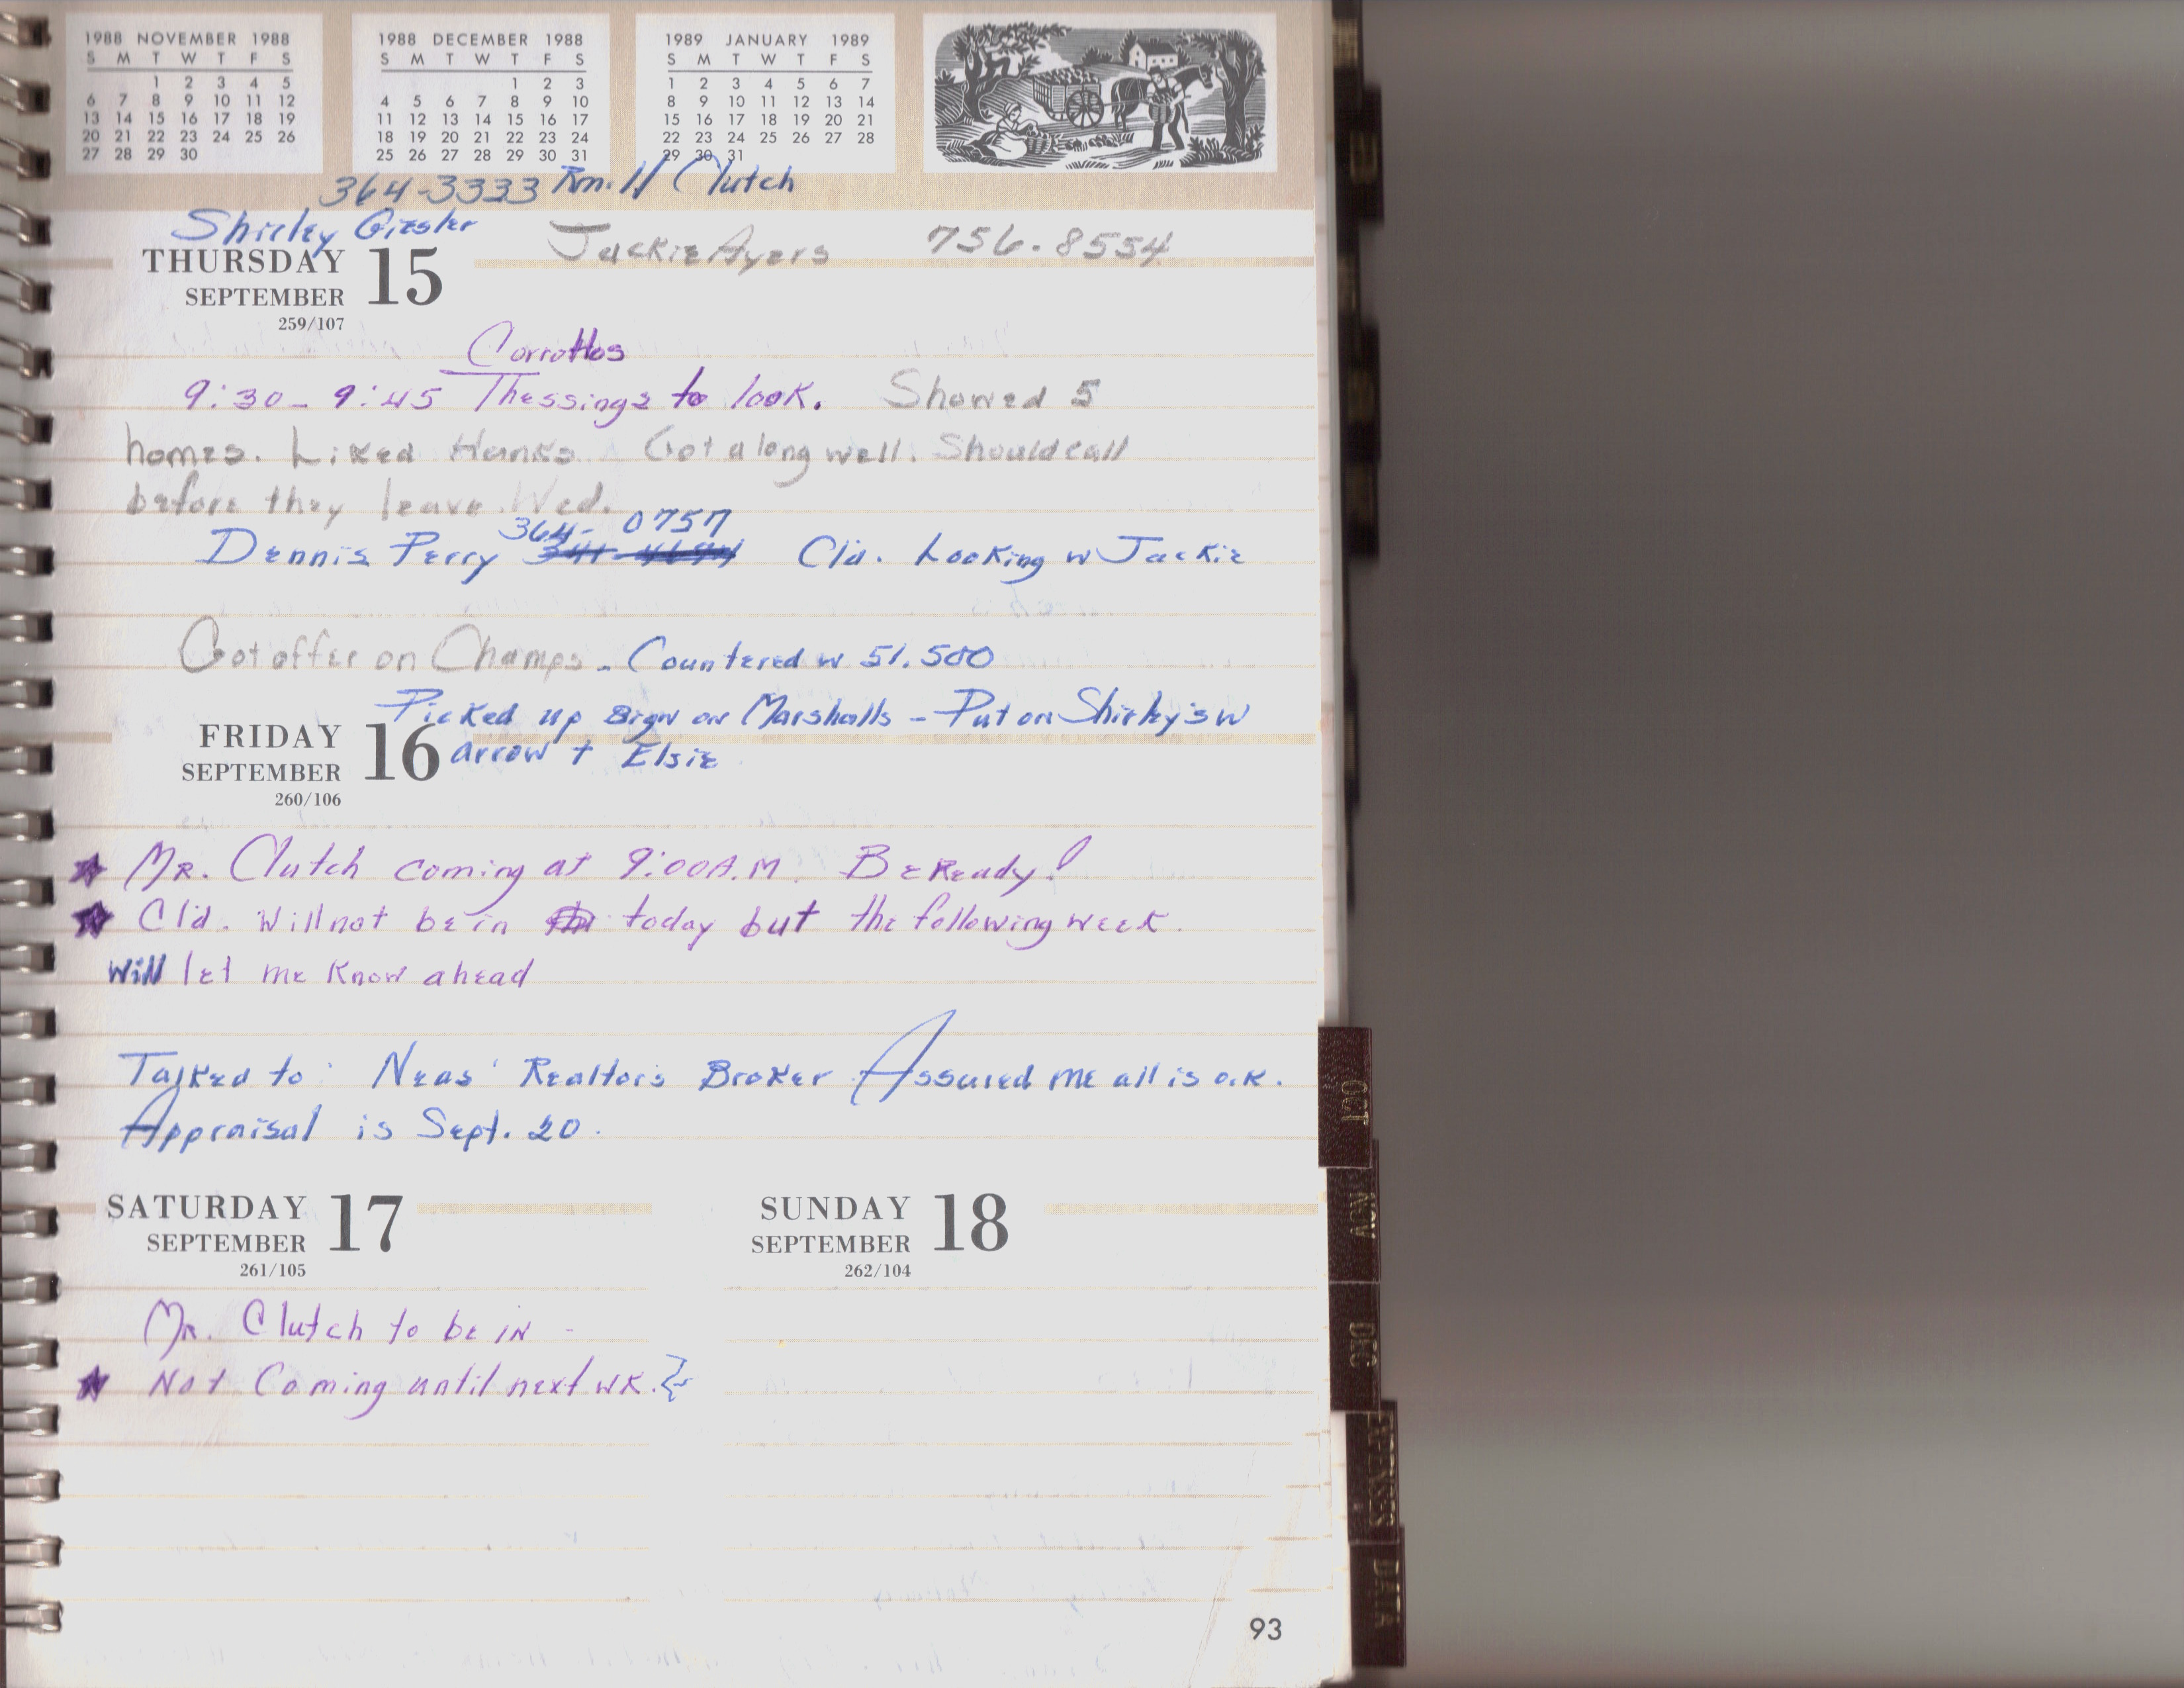 1988 NOVEMBER 1988
S M T W T F S
1 2 3 4 5
6 7 8 9 10 11 12
13 14 15 16 17 18 19
20 21 22 23 24 25 26
27 28 29 30
1988 DECEMBER 1988
S M T W T F S
1 2 3
4 5 6 7 8 9 10
11 12 13 14 15 16 17
18 19 20 21 22 23 24
25 26 27 28 29 30 31
1989 JANUARY 1989
S M T W T F S
1 2 3 4 5 6 7
8 9 10 11 12 13 14
15 16 17 18 19 20 21
22 23 24 25 26 27 28
29 30 31
364-3333 Rm. 11 Clutch
Shirley Giesler Jackie Ayers 756-8554
THURSDAY 15
SEPTEMBER
259/107
Corrottos
9:30 - 9:45 Thessings to look. Showed 5
homes. Liked Hanks. Got along well. Should call
before they leave Wed.
364- 0757
Dennis Perry Cld. Looking w Jackie
Got offer on Champs - Countered w 51,500
Picked up sign on Marshalls - Put on Shirley's w
arrow + Elsie
FRIDAY 16
SEPTEMBER
260/106
Mr. Clutch coming at 9:00 A.M. Be Ready!
Cld. Will not be in today but the following week.
Will let me know ahead
Talked to: Neas' Realtors Broker Assured me all is o.k.
Appraisal is Sept. 20.
SATURDAY 17
SEPTEMBER
261/105
Mr. Clutch to be in -
Not Coming until next wk.
SUNDAY 18
SEPTEMBER
262/104
OCT
NOV
DEC
EXPENSES
DATA
93